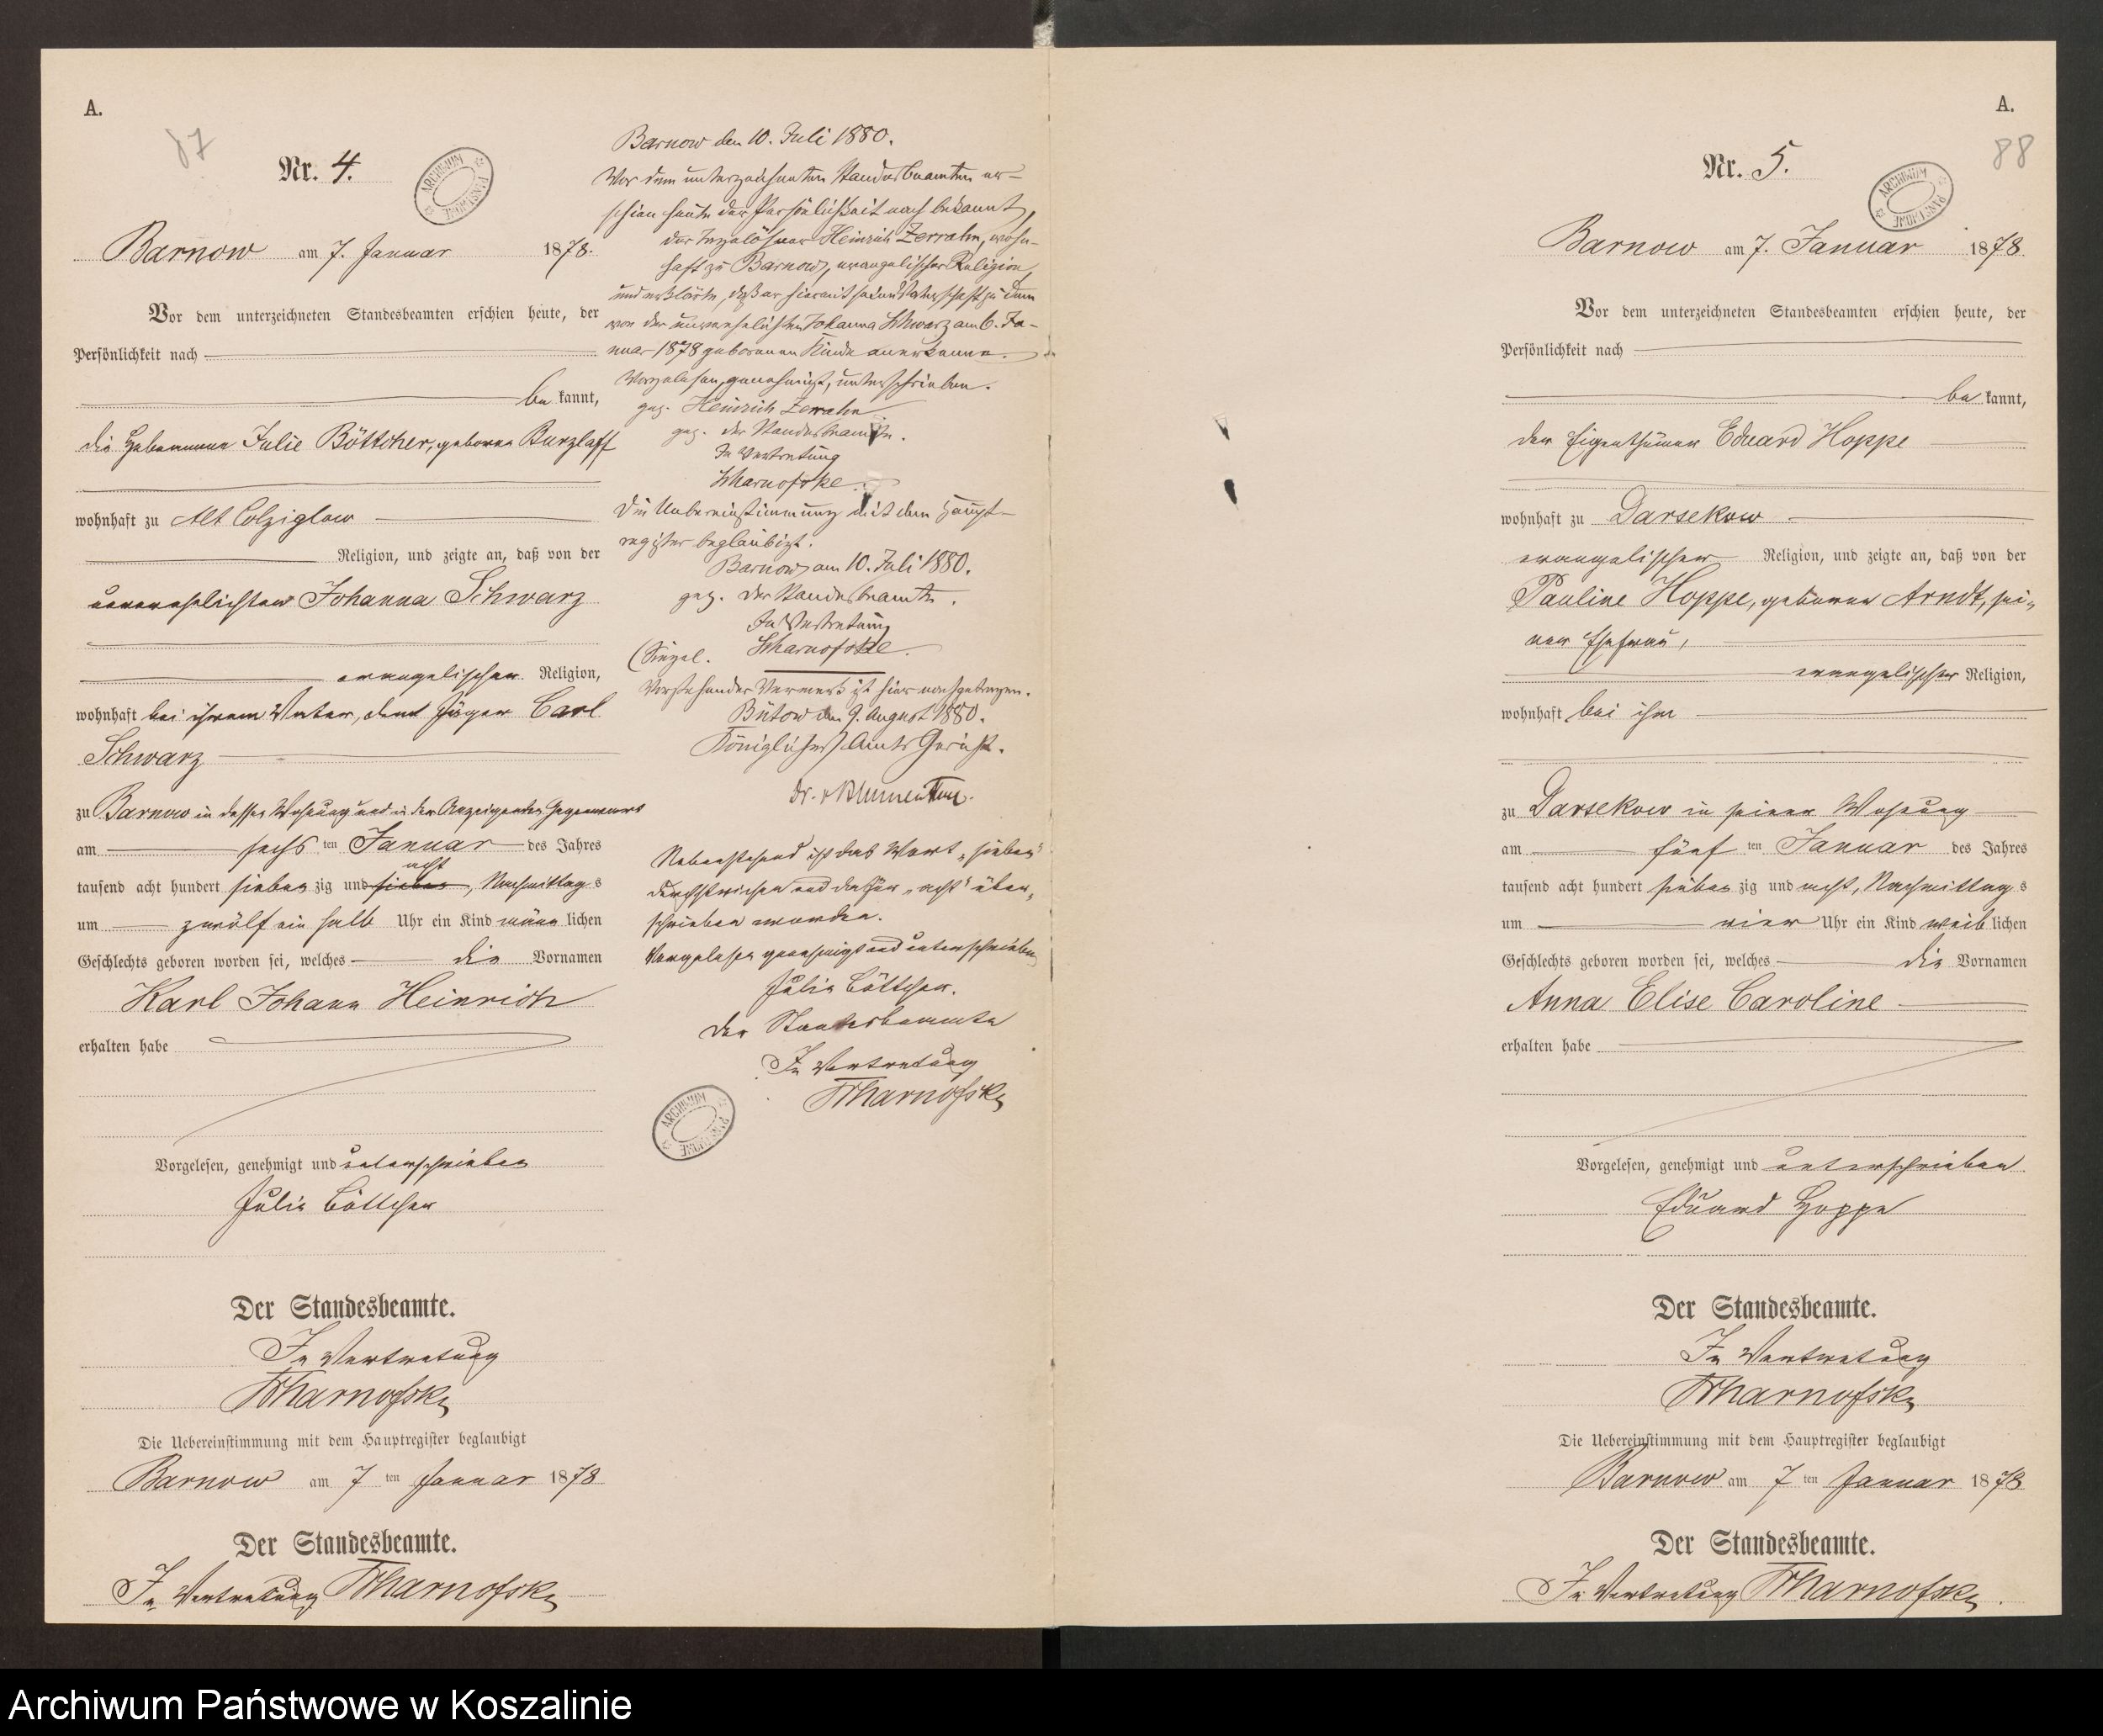 A.
87
Nr. 4.
ARCHIWUM PAŃSTWOWE
Barnow am 7. Januar 1878.
Vor dem unterzeichneten Standesbeamten erschien heute, der
Persönlichkeit nach
be kannt,
die Hebamme Julie Böttcher, geborne Burzlaff
wohnhaft zu Alt Colziglow
Religion, und zeigte an, daß von der
unverehelichten Johanna Schwarz
evangelischer Religion,
wohnhaft bei ihrem Vater, dem Jäger Carl
Schwarz
zu Barnow in dessen Wohnung und in der Anzeigenden Gegenwart
am sechs ten Januar des Jahres
acht
tausend acht hundert sieben zig und sieben, Nachmittag s
um zwölf ein halb Uhr ein Kind männ lichen
Geschlechts geboren worden sei, welches die Vornamen
Karl Johann Heinrich
erhalten habe
Vorgelesen, genehmigt und unterschrieben
Julie Böttcher
Der Standesbeamte.
In Vertretung
Scharnofske
Die Uebereinstimmung mit dem Hauptregister beglaubigt
Barnow am 7 ten Januar 1878
Der Standesbeamte.
In Vertretung Scharnofske
Barnow den 10. Juli 1880.
Vor dem unterzeichneten Standesbeamten er-
schien heute der Persönlichkeit nach bekannt,
der Heinrich Zerrahn, wohn-
haft zu Barnow, evangelischer Religion,
und erklärte, daß er hiermit seine Vaterschaft zu dem
von der unverehelichten Johanna Schwarz am 6. Ja-
nuar 1878 geborenen Kinde anerkenne.
Vorgelesen, genehmigt, unterschrieben.
gez. Heinrich Zerrahn
gez. Der Standesbeamte.
In Vertretung
Scharnofske.
Die Uebereinstimmung mit dem Haupt-
register beglaubigt.
Barnow, am 10. Juli 1880.
gez. Der Standesbeamte.
In Vertretung
(Siegel. Scharnofske.
Vorstehender Vermerk ist hier nachgetragen.
Bütow den 9. August 1880.
Königliches Amts Gericht.
Nebenstehend ist das Wort „sieben"
durchstrichen und dafür „acht" über-
schrieben worden.
Vorgelesen genehmigt und unterschrieben
Julie Böttcher.
Der Standesbeamte
In Vertretung
Scharnofske
ARCHIWUM PAŃSTWOWE
A.
88
Nr. 5.
ARCHIWUM PAŃSTWOWE
Barnow am 7. Januar 1878
Vor dem unterzeichneten Standesbeamten erschien heute, der
Persönlichkeit nach
be kannt,
der Eigenthümer Eduard Hoppe
wohnhaft zu Darsekow
evangelischer Religion, und zeigte an, daß von der
Pauline Hoppe, geborene Arndt, sei-
ner Ehefrau,
evangelischer Religion,
wohnhaft bei ihm
zu Darsekow in seiner Wohnung
am fünf ten Januar des Jahres
tausend acht hundert sieben zig und acht, Nachmittag s
um vier Uhr ein Kind weib lichen
Geschlechts geboren worden sei, welches die Vornamen
Anna Elise Caroline
erhalten habe
Vorgelesen, genehmigt und unterschrieben
Eduard Hoppe
Der Standesbeamte.
In Vertretung
Scharnofske
Die Uebereinstimmung mit dem Hauptregister beglaubigt
Barnow am 7 ten Januar 1878
Der Standesbeamte.
In Vertretung Scharnofske.
Archiwum Państwowe w Koszalinie